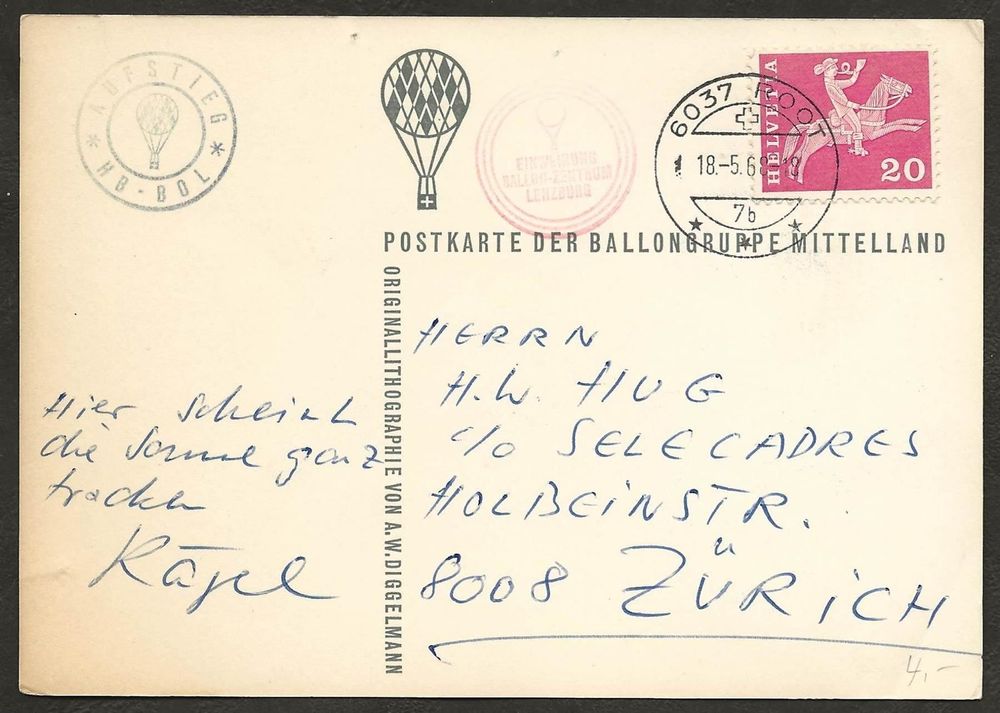 AUFSTIEG
* HB-BOL *
EINWEIHUNG
BALLON-ZENTRUM
LENZBURG
6037 ROOT
18.-5.68
7b
HELVETIA
20
POSTKARTE DER BALLONGRUPPE MITTELLAND
ORIGINALLITHOGRAPHIE VON A.W.DIGGELMANN
Hier scheint
die Sonne ganz
trocken
HERRN
H.W. HUG
c/o SELECADRES
HOLBEINSTR.
8008 ZÜRICH
4.-